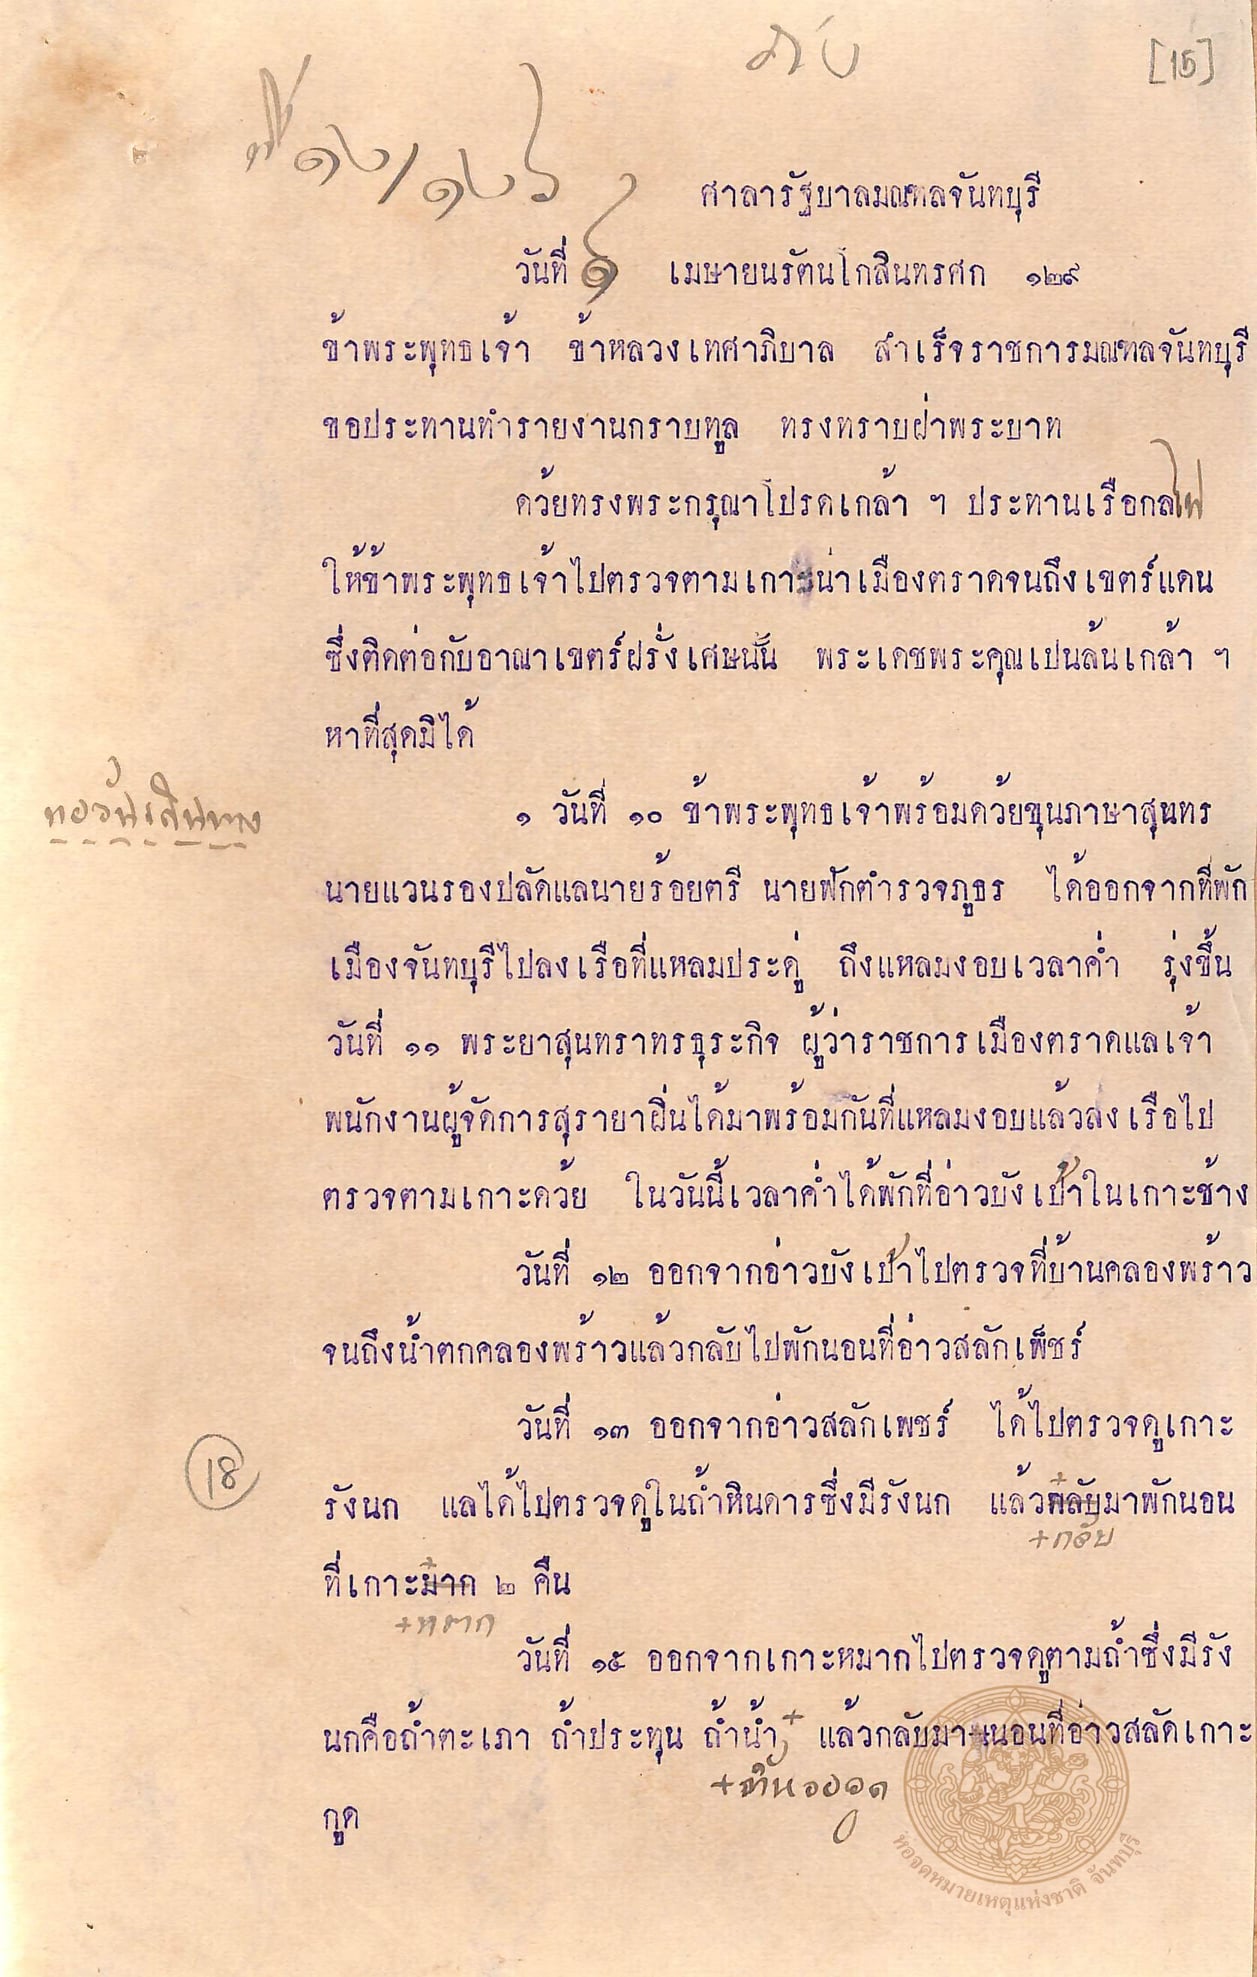 [15]
ที่ ๑๒/๑๒๖
ศาลารัฐบาลมณฑลจันทบุรี
วันที่ เมษายนรัตนโกสินทรศก ๑๒๙
ข้าพระพุทธเจ้า ข้าหลวงเทศาภิบาล สำเร็จราชการมณฑลจันทบุรี
ขอประทานทำรายงานกราบทูล ทรงทราบฝ่าพระบาท
ด้วยทรงพระกรุณาโปรดเกล้า ฯ ประทานเรือกลไฟ
ให้ข้าพระพุทธเจ้าไปตรวจตามเกาะน่าเมืองตราดจนถึงเขตร์แดน
ซึ่งติดต่อกับอาณาเขตร์ฝรั่งเศษนั้น พระเดชพระคุณเปนล้นเกล้า ฯ
หาที่สุดมิได้
๑ วันที่ ๑๐ ข้าพระพุทธเจ้าพร้อมด้วยขุนภาษาสุนทร
นายแวนรองปลัดแลนายร้อยตรี นายฟักตำรวจภูธร ได้ออกจากที่พัก
เมืองจันทบุรีไปลงเรือที่แหลมประดู่ ถึงแหลมงอบเวลาค่ำ รุ่งขึ้น
วันที่ ๑๑ พระยาสุนทราทรธุระกิจ ผู้ว่าราชการเมืองตราดแลเจ้า
พนักงานผู้จัดการสุรายาฝิ่นได้มาพร้อมกันที่แหลมงอบแล้วลงเรือไป
ตรวจตามเกาะด้วย ในวันนี้เวลาค่ำได้พักที่อ่าวบังเบ้าในเกาะช้าง
วันที่ ๑๒ ออกจากอ่าวบังเบ้าไปตรวจที่บ้านคลองพร้าว
จนถึงน้ำตกคลองพร้าวแล้วกลับไปพักนอนที่อ่าวสลักเพ็ชร์
วันที่ ๑๓ ออกจากอ่าวสลักเพชร์ ได้ไปตรวจดูเกาะ
18
รังนก แลได้ไปตรวจดูในถ้ำหินดารซึ่งมีรังนก แล้วกลับมาพักนอน
+กลับ
ที่เกาะม้าก ๒ คืน
+หมาก
วันที่ ๑๕ ออกจากเกาะหมากไปตรวจดูตามถ้ำซึ่งมีรัง
นกคือถ้ำตะเภา ถ้ำประทุน ถ้ำน้ำ + แล้วกลับมานอนที่อ่าวสลัดเกาะ
กูด
หอจดหมายเหตุแห่งชาติ จันทบุรี